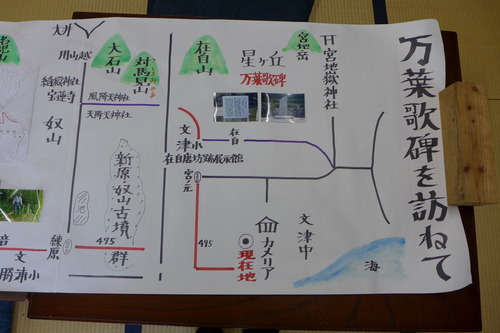 万葉歌碑を訪ねて
宮地嶽神社
宮地岳
星ヶ丘
万葉歌碑
在自山
対馬見山
大石山
用山越
宝蓮寺
奴山
風降天神社
天降天神社
文
津小
在自
在自唐坊跡展示館
宮ノ元
新原奴山古墳
群
練原
495
495
文
勝浦小
カメリア
現在地
文
津中
海